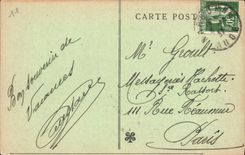 CARTE POSTALE
Mr Groult
Messageries Hachette
111 Rue Réaumur
Paris
Bon souvenir de
Vacances